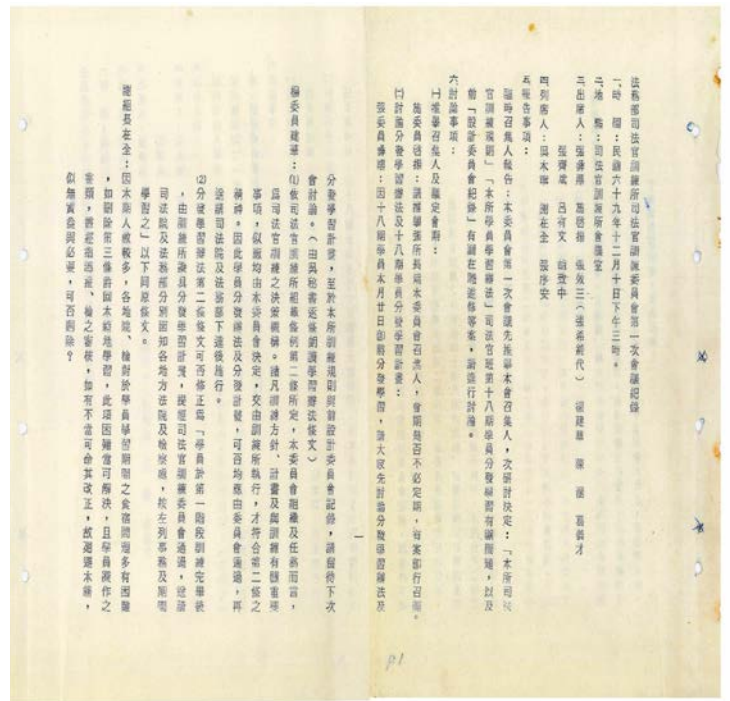 法務部司法官訓練所司法官訓練委員會第一次會議紀錄
一、時間：民國六十九年十二月十日下午三時。
二、地點：司法官訓練所會議室
三、出席人：張彝鼎 施啓揚 張效三（張希純代） 楊建華 陳涵 葛義才
張齊斌 呂有文 翁致中
四、列席人：吳木琳 謝在全 張序安
五、報告事項：
臨時召集人報告：本委員會第一次會議先推舉本會召集人，次研討決定：「本所司法
官訓練規則」「本所學員學習辦法」司法官班第十八期學員分發學習有關問題，以及
前「設計委員會紀錄」有關在隨進修等案，請進行討論。
六、討論事項：
㈠推舉召集人及議定會期：
施委員啓揚：請推舉張所長為本委員會召集人，會期是否不必定期，有案即行召開。
㈡討論分發學習辦法及十八期學員分發學習計畫：
張委員彝鼎：因十八期學員本月廿日即將分發學習，請大家先討論分發學習辦法及
一
分發學習計畫，至於本所訓練規則與前設計委員會記錄，請留待下次
會討論。（由吳秘書逐條朗讀學習辦法條文）
楊委員建華：⑴依司法官訓練所組織條例第二條所定，本委員會組織及任務而言，
為司法官訓練之決策機構。諸凡訓練方針、計畫及與訓練有關重要
事項，似應均由本委員會決定，交由訓練所執行，才符合第二條之
精神。因此學員分發辦法及分發計畫，可否均應由委員會通過，再
送請司法院及法務部下達後施行。
⑵分發學習辦法第二條條文可否修正為「學員於第一階段訓練完畢後
，由訓練所擬具分發學習計畫，提經司法官訓練委員會通過，送請
司法院及法務部分別函知各地方法院及檢察處，按左列事務及期間
學習之」以下同原條文。
謝組長在全：因本期人數較多，各地院、檢對於學員學習期間之食宿問題多有困難
，如刪除第三條許回本籍地學習，此項困難當可解決，且學員擬作之
書類，皆經指導推、檢之審核，如有不當可命其改正，故迴避本籍，
似無實益與必要，可否刪除？
P.1